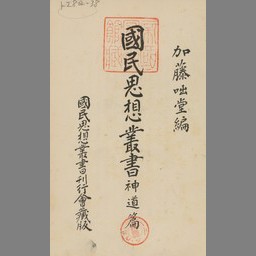 加藤咄堂編
國民思想叢書 神道篇
國民思想叢書刊行會藏版